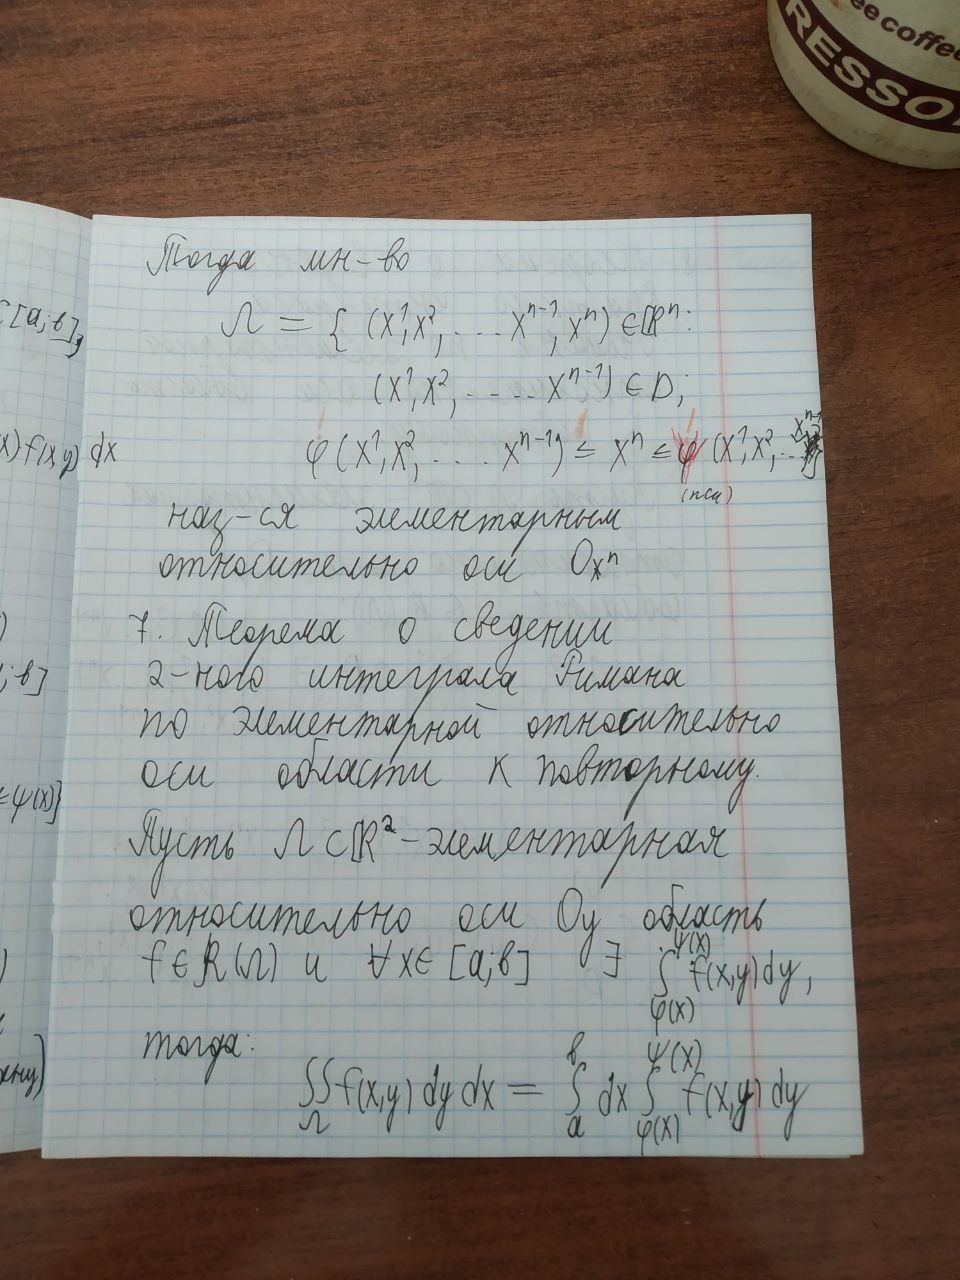 ee coffee
RESSO
Тогда мн-во
Ω = { (x¹, x², ... xⁿ⁻¹, xⁿ) ∈ ℝⁿ:
[a; b],
(x¹, x², ..... xⁿ⁻¹) ∈ D;
x) f(x, y) dx
φ(x¹, x², ... xⁿ⁻¹) ≤ xⁿ ≤ ψ (x¹, x², ... xⁿ⁻¹)}
(пси)
наз-ся элементарным
относительно оси Oxⁿ
7. Теорема о сведении
; b]
2-ного интеграла Римана
по элементарной относительно
оси области к повторному.
≤ ψ(x)}
Пусть Ω ⊂ ℝ² - элементарная
относительно оси Oy область
f ∈ R(Ω) и ∀ x ∈ [a; b] ∃ ∫_{φ(x)}^{ψ(x)} f(x, y) dy,
тогда:
∬_Ω f(x, y) dy dx = ∫_a^b dx ∫_{φ(x)}^{ψ(x)} f(x, y) dy